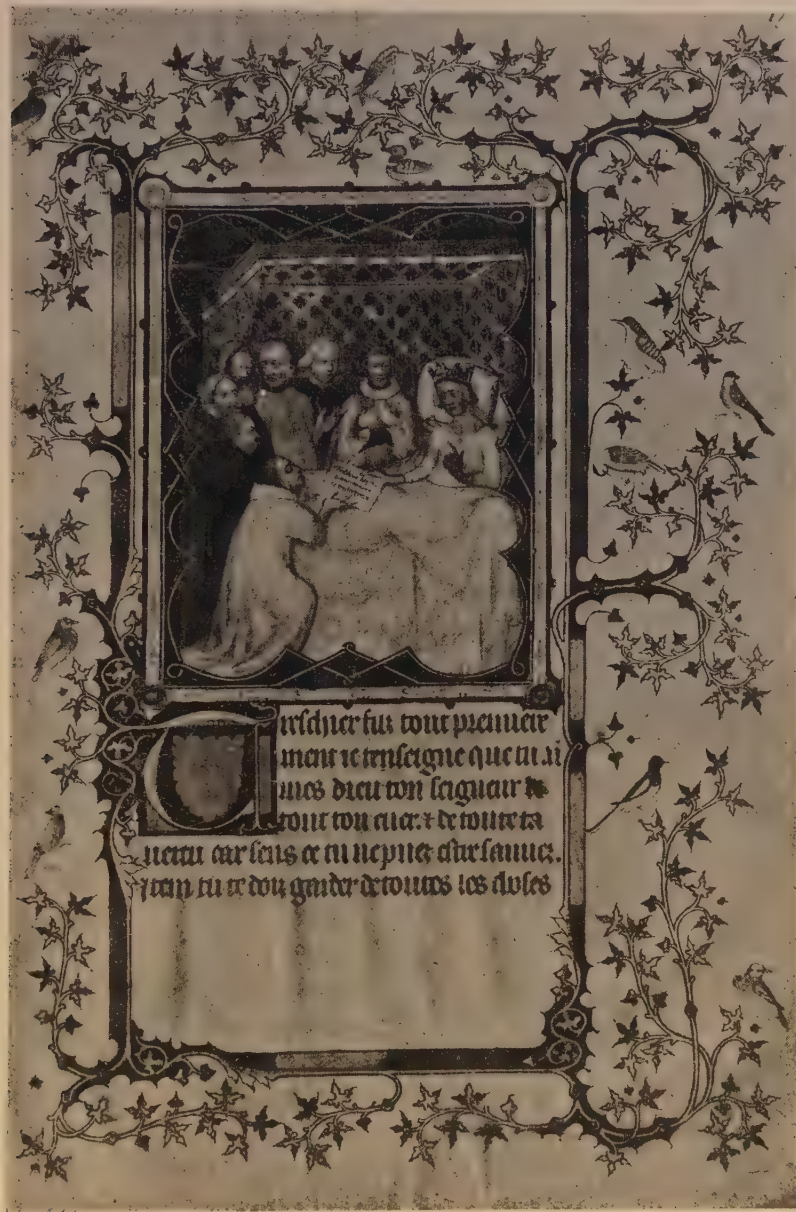 Treschier filz tout premiere
ment ie tenseigne que tu ai
mes dieu ton seigneur de
tout ton cuer. & de toute ta
uertu car sens ce tu ne puez estre sauuez.
Item tu te doiz garder de toutes les choses